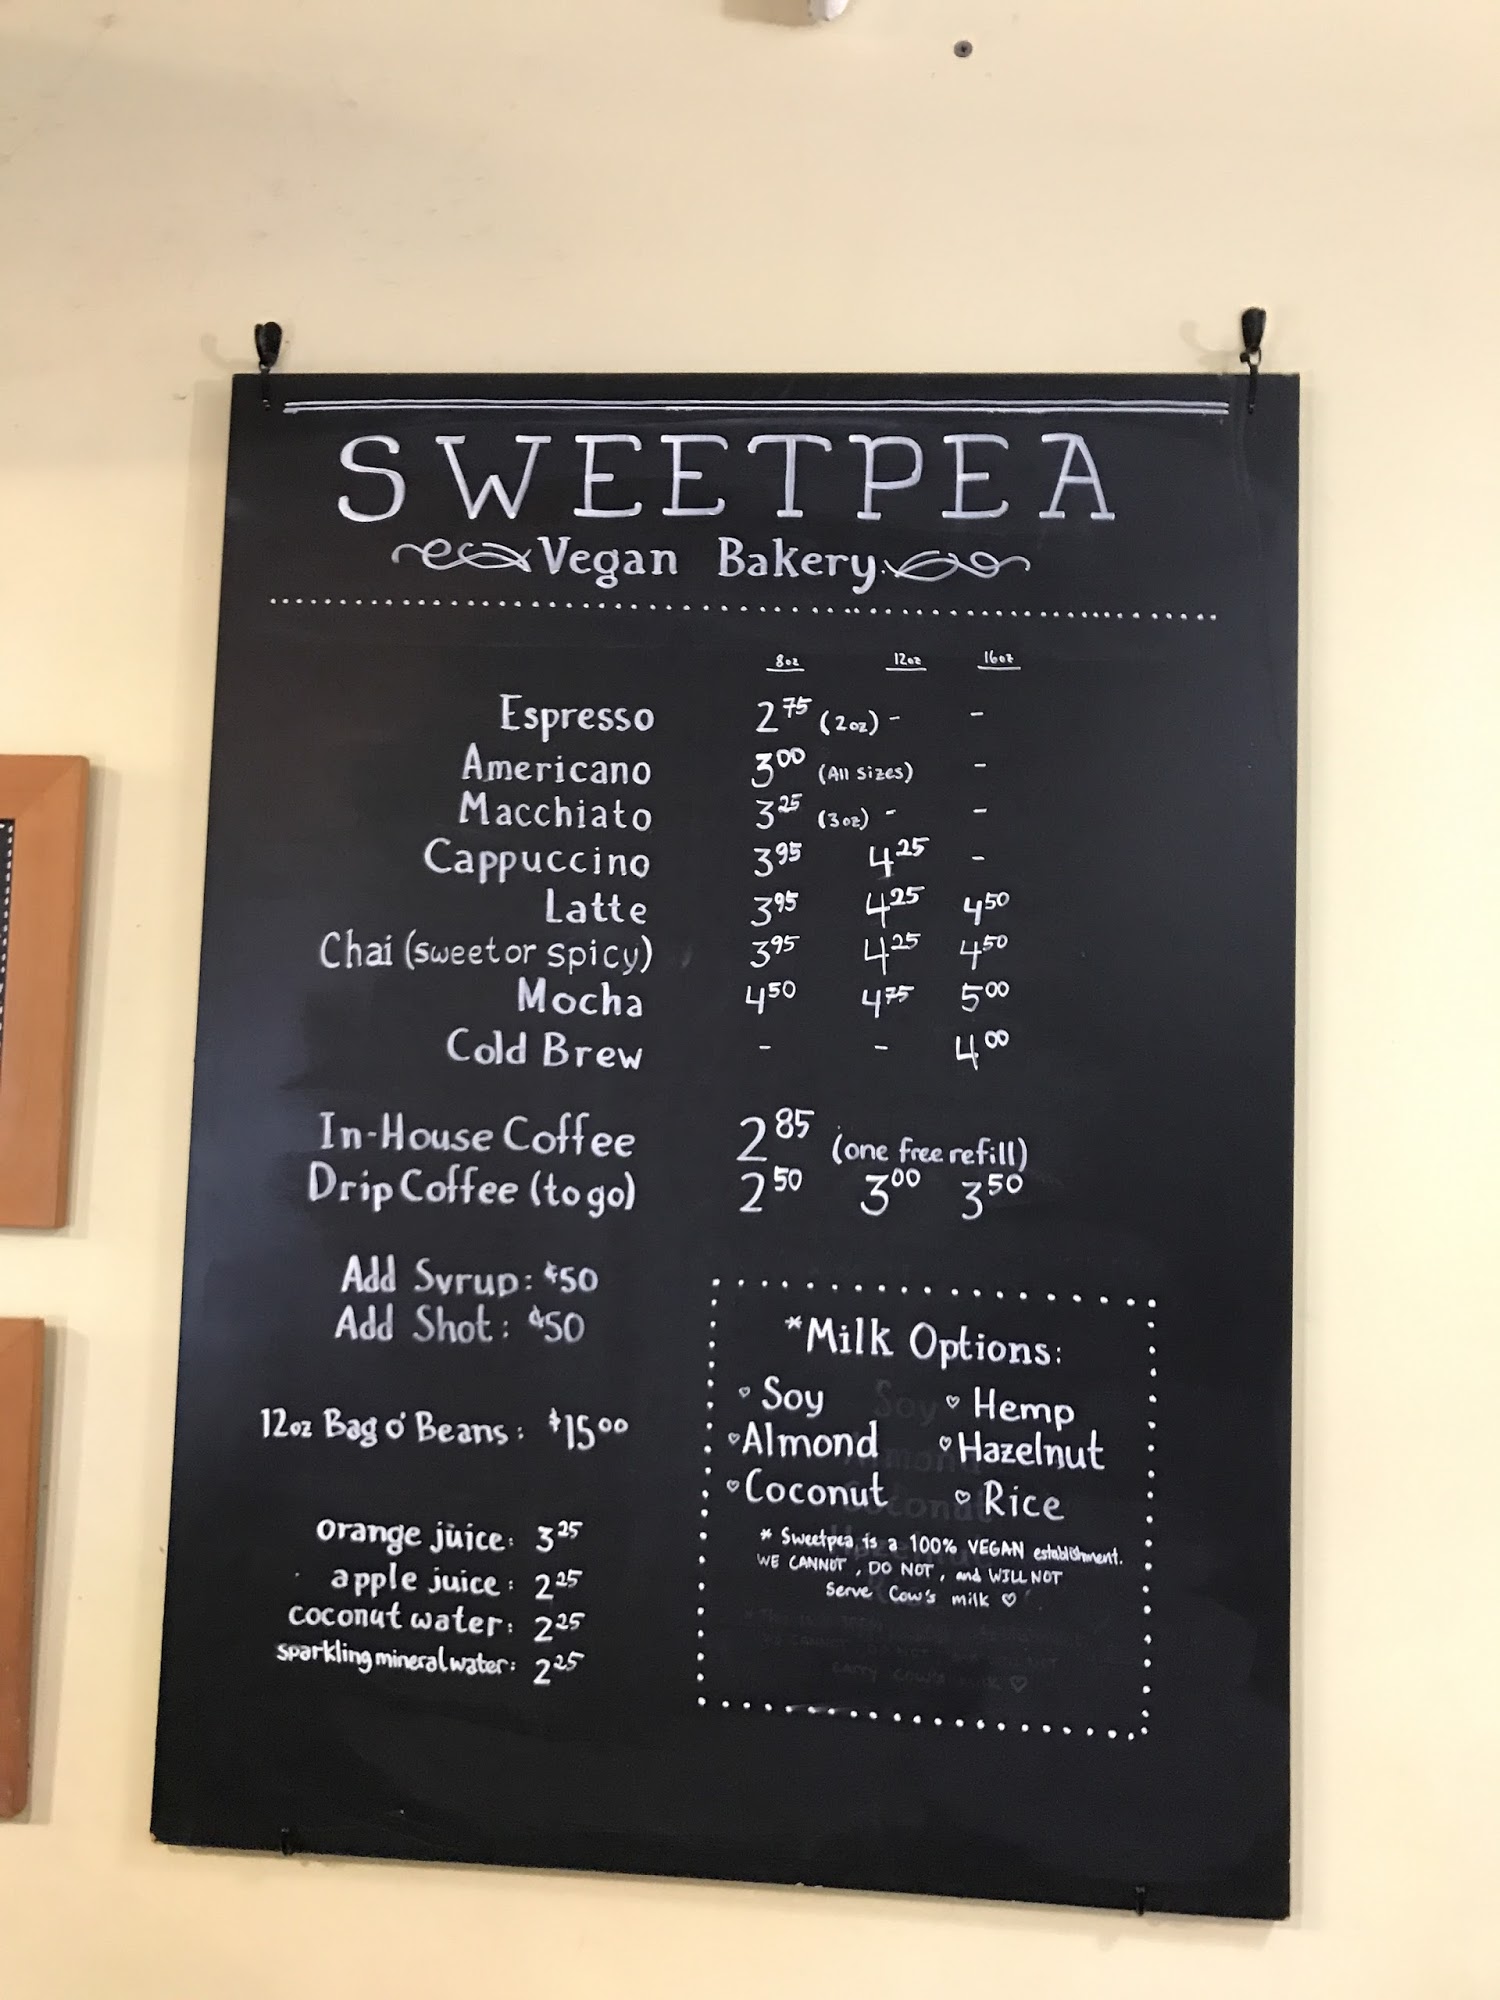 SWEETPEA
Vegan Bakery
8oz 12oz 16oz
Espresso 2 75 (2oz) - -
Americano 3 00 (All sizes) -
Macchiato 3 25 (3oz) - -
Cappuccino 3 95 4 25 -
Latte 3 95 4 25 4 50
Chai (sweet or spicy) 3 95 4 25 4 50
Mocha 4 50 4 75 5 00
Cold Brew - - 4 00
In-House Coffee 2 85 (one free refill)
Drip Coffee (to go) 2 50 3 00 3 50
Add Syrup: ¢50
Add Shot: ¢50
12oz Bag o' Beans: $15 00
orange juice: 3 25
apple juice: 2 25
coconut water: 2 25
sparkling mineral water: 2 25
*Milk Options:
♡ Soy ♡ Hemp
♡ Almond ♡ Hazelnut
♡ Coconut ♡ Rice
* Sweetpea is a 100% VEGAN establishment.
WE CANNOT, DO NOT, and WILL NOT
Serve Cow's milk ♡